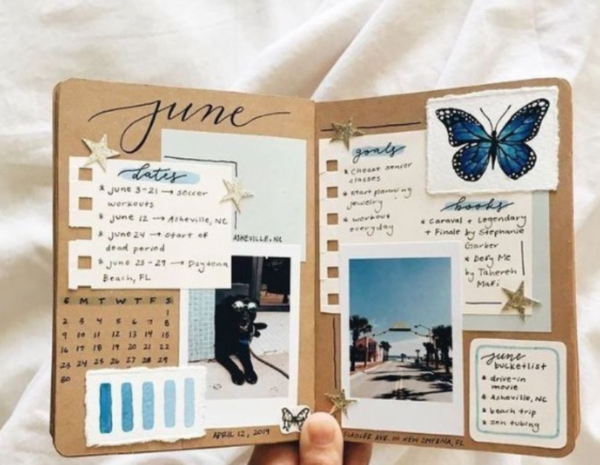 june
dates
* june 3-21 → soccer
workouts
* june 12 → Asheville, NC
* june 24 → start of
dead period
* june 25-29 → Daytona
Beach, FL
ASHEVILLE, NC
S M T W T F S
1
2 3 4 5 6 7 8
9 10 11 12 13 14 15
16 17 18 19 20 21 22
23 24 25 26 27 28 29
30
APRIL 12, 2019
goals
* choose senior
classes
* start planning
jewelry
* workout
everyday
books
* Caraval + Legendary
+ Finale by Stephanie
Garber
* Defy Me
by Tahereh
Mafi
june
bucketlist
* drive-in
movie
* Asheville, NC
* beach trip
* zen tubing
FLAGLER AVE. IN NEW SMYRNA, FL